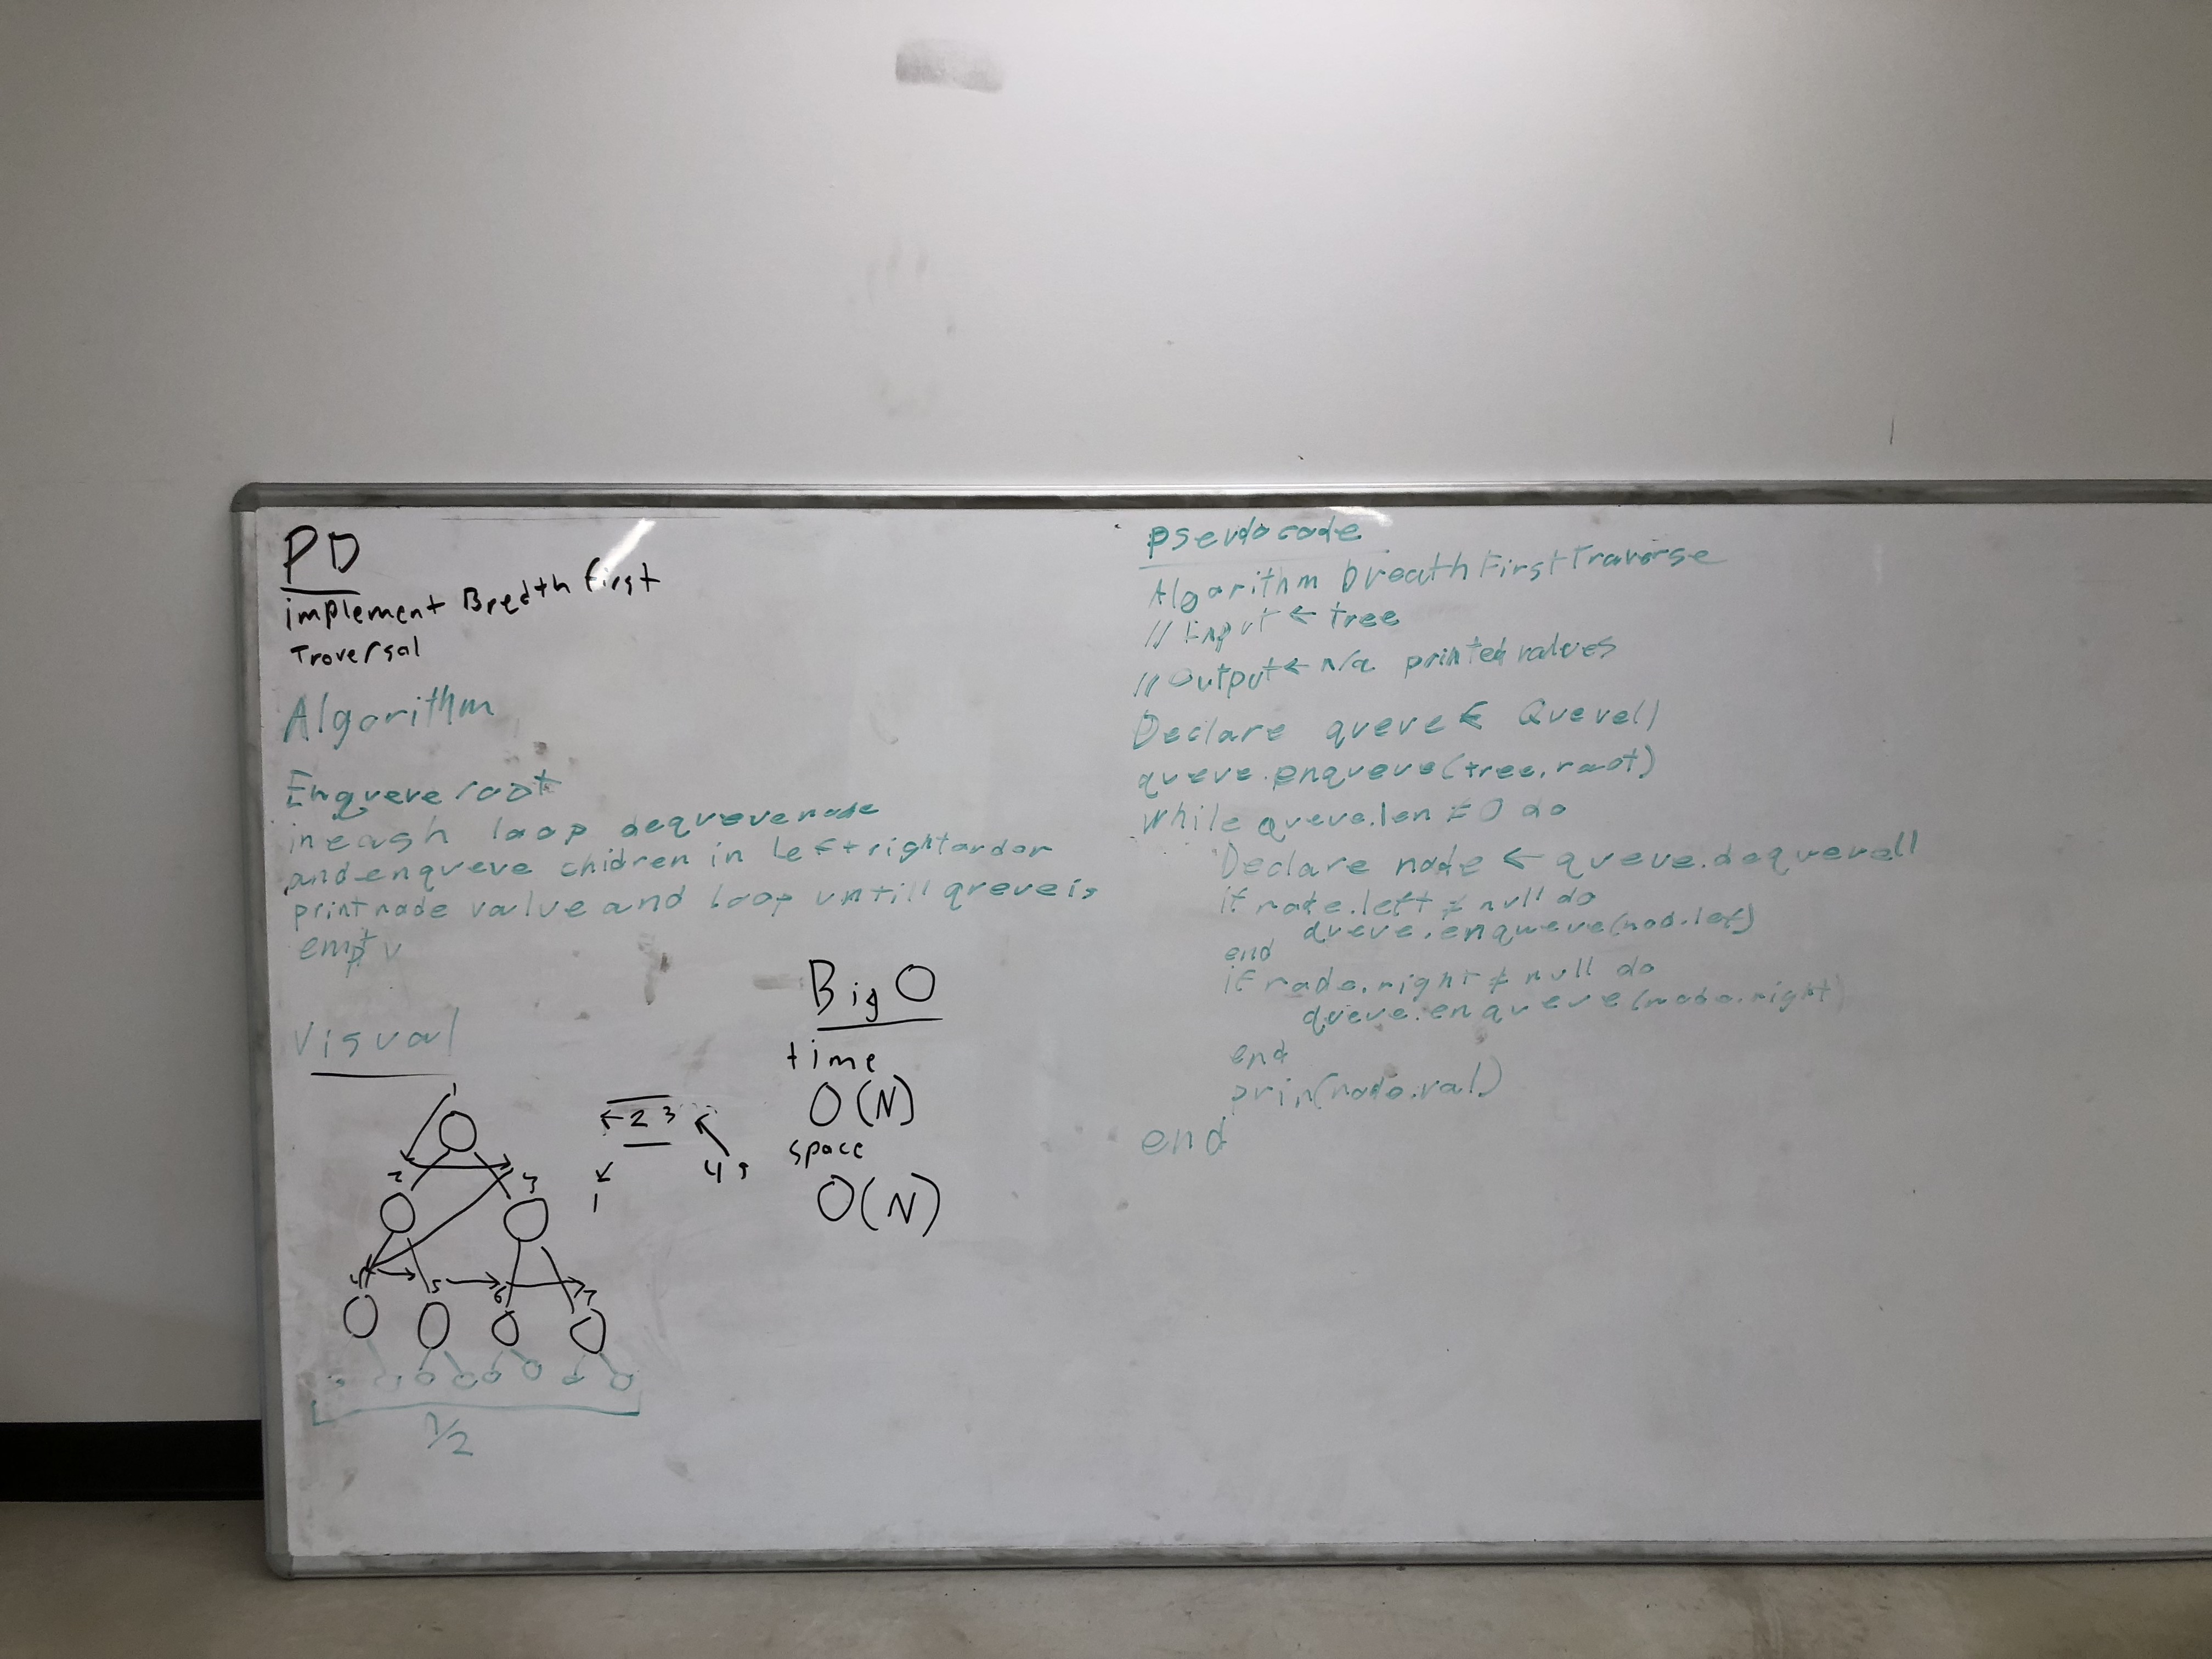 PD
implement Bredth first
Traversal
Algorithm
Enqueue root
in each loop dequeue node
and enqueue chidren in left right order
print node value and loop untill queue is
empty
Visual
1
2
3
4
5
6
7
n/2
2 3
1
4 5
Big O
time
O(N)
space
O(N)
pseudo code
Algorithm breath First Traverse
// Input ← tree
// Output ← n/a printed values
Declare queue ← Queue()
queue.enqueue(tree.root)
while queue.len ≠ 0 do
Declare node ← queue.dequeue()
if node.left ≠ null do
queue.enqueue(nod.left)
end
if node.right ≠ null do
queue.enqueue(node.right)
end
prin(node.val)
end